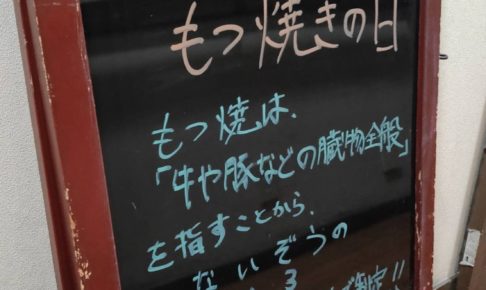 もつ焼きの日
もつ焼は、
「牛や豚などの臓物全般」
を指すことから、
ないぞうの
3
制定!!